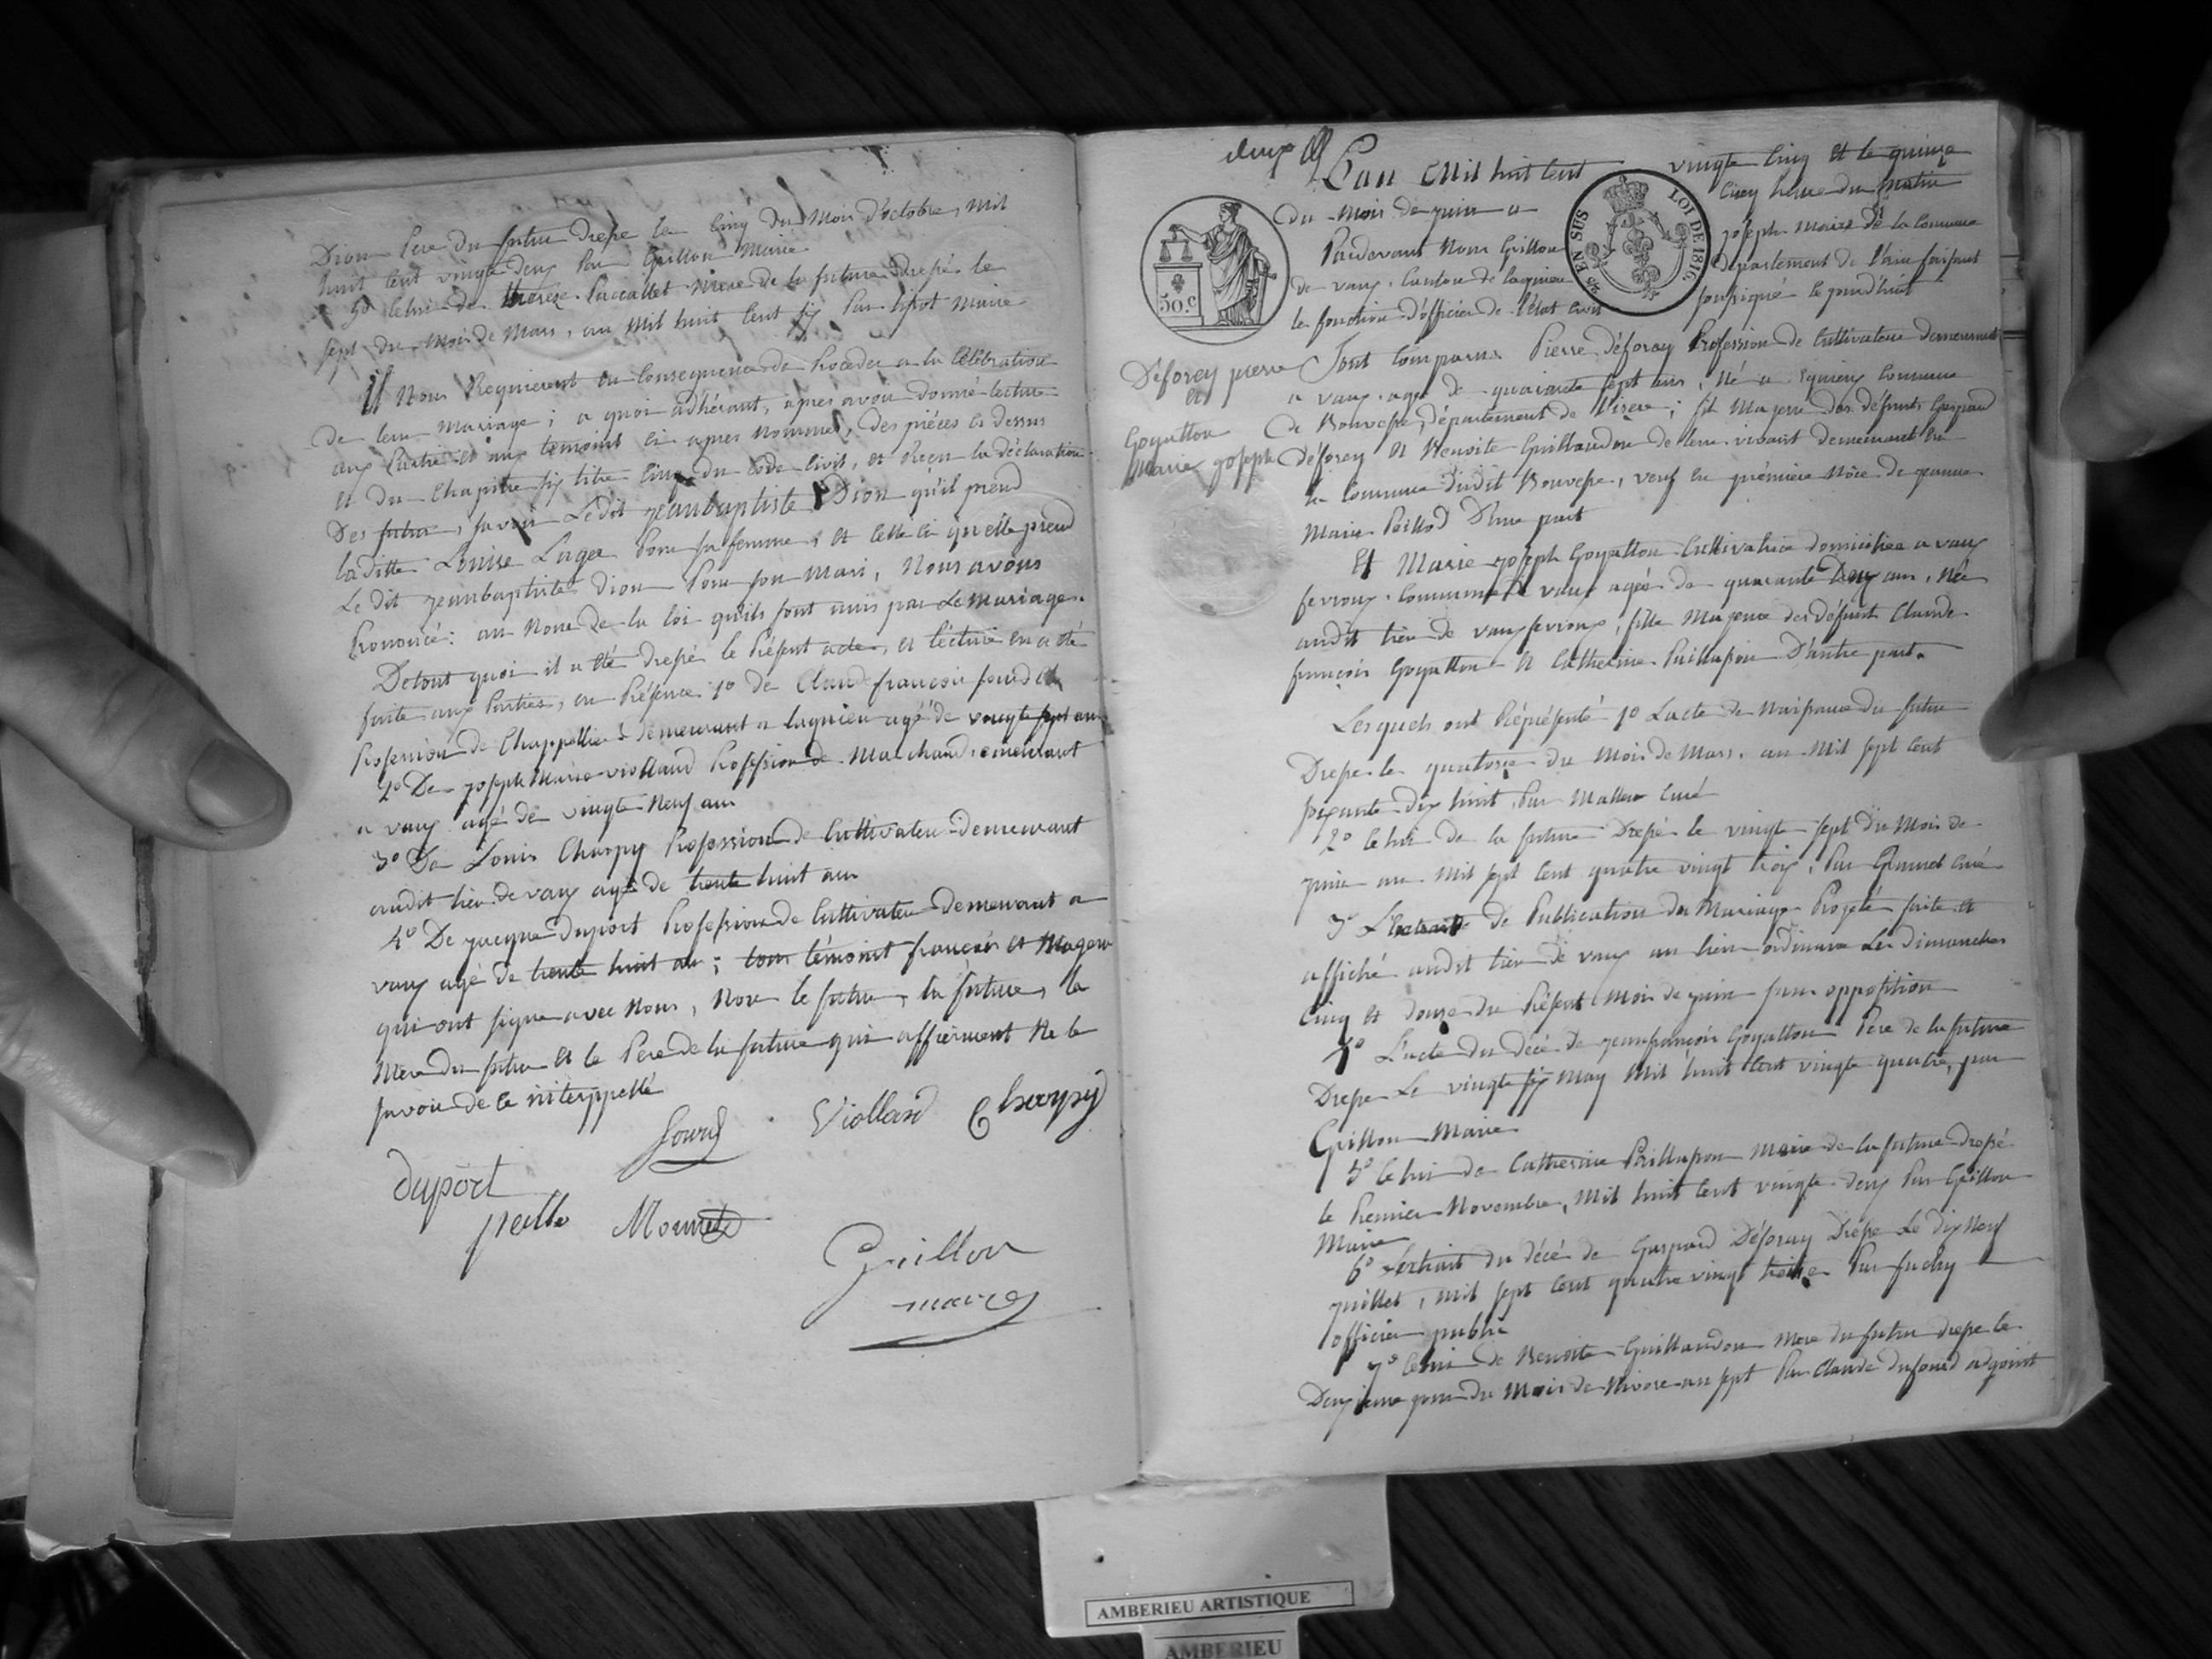 Dion Pere du futur drepé le cinq du Mois d'octobre, Mil
huit cent vingt deux Par Guillon Maire
5º Celui de therèze Paccallet Mere de la future drepé le
sept du Mois de Mars, an Mil huit Cent six Par Maire
Il Nous Requierent en Consequence de Proceder a la Célébration
de leur Mariage ; a quoi adhérant, apres avoir donné lecture
aux Parties et aux temoins ci apres Nommés, des piéces ci dessus
et du Chapitre six titre Cinq du Code Civil, et Reçu la déclaration
Des futur, savoir Ledit jeanbaptiste Dion qu'il prend
laditte Louise Luger Pour sa femme, et Celle ci qu'elle prend
Le dit jeanbaptiste dion Pour son Mari, Nous avons
Prononcé : au Nom de la loi qu'ils sont unis par Le mariage.
De tout quoi il a été drepé le Présent acte, et lécture en a été
faite aux Parties, en Présence 1º de Claude françois
Profession de Chappellier demeurant a Lagnieu agé de vingt sept ans
2º De joseph Marie viollaud Profession de Marchand demeurant
a vaux agé de vingt Neuf ans
3º De Louis Charpy Profession de Cultivateur demeurant
audit lieu de vaux agé de trente huit ans
4º De jacque Duport Profession de Cultivateur demeurant a
vaux agé de trente huit ans ; tous témoint françois et Mageur
qui ont signe avec Nous, Non le futur, la future, la
Mere du futur et le Pere de la future qui affirment Ne le
savoir de ce interppellé
Viollaud Charpy
duport
Guillon
maire
L'an Mil huit Cent vingt Cinq et le quinze
du Mois de juin a Cinq heure du matin
Pardevant Nous Guillon joseph Maire de la Commune
de vaux, Canton de Lagnieu département de l'ain faisant
le fonction d'officier de l'état Civil soussigné le jourd'hui
50.c
25 EN SUS LOI DE 1816.
Déforey pierre
et
Goyatton
Marie joseph
Sont Comparus Pierre Déforay Profession de Cultivateur demeurant
a vaux agé de quarante sept ans, Né a Commune
de Bouvesse, département de l'isere ; fils Mageur des défunts Gaspard
déforey et Benoite Guillaudon de leur vivant demeurant en
la Commune dudit Bouvesse, veuf en prémiere Nôce de jeanne
Marie D'une part
Et Marie joseph Goyatton Cultivatrice domiciliee a vaux
fevroux Commune de vaux agée de quarante Deux ans, Née
audit lieu de vaux fevroux, fille Majeure des défunt Claude
françois Goyatton et Catherine Paillasson D'autre part.
Lesquels ont Réprésenté 1º Lacte de Naissance du futur
Drepé le quatorse du Mois de Mars, an Mil sept Cent
soixante dix huit Par Curé
2º Celui de la future Drepé le vingt sept du Mois de
juin an Mil sept Cent quatre vingt trois, Par Curé
3º L'extrait de Publication du Mariage Projeté faite et
affiché audit lieu de vaux au lieu ordinaire Les dimanches
Cinq et douze du Présent Mois de juin sans opposition
4º L'acte du décé de jeanfrançois Goyatton Pere de la future
Drepé Le vingt six May Mil huit Cent vingt quatre, par
Guillon Maire
5º Celui de Catherine Paillasson Mere de la future drepé
le Premier Novembre, Mil huit Cent vingt deux Par Guillon
Maire
6º L'extrait du décé de Gaspard Déforay Drepé Le dix Neuf
juillet, Mil sept Cent quatre vingt treise Par
officier public
7º Celui de Benoite Guillaudon Mere du futur drepé le
Deuxieme jour du Mois de Nivose an sept Par Claude dufourd adjoint
AMBERIEU ARTISTIQUE
AMBERIEU